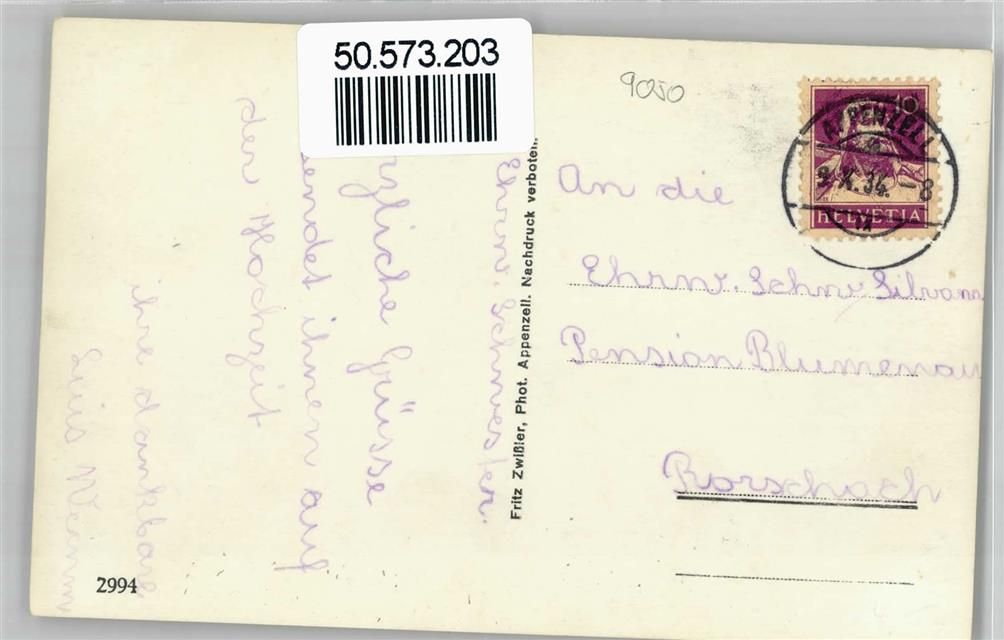 50.573.203
9050
10
APPENZELL
9. X. 34. - 8
HELVETIA
An die
Ehrw. Schw. Silvana
Pension Blumenau
Rorschach
Fritz Zwißler, Phot. Appenzell. Nachdruck verboten.
Ehrw. Schwester.
rzliche Grüsse
endet ihnen auf
der Hochzeit
ihre dankbare
2994